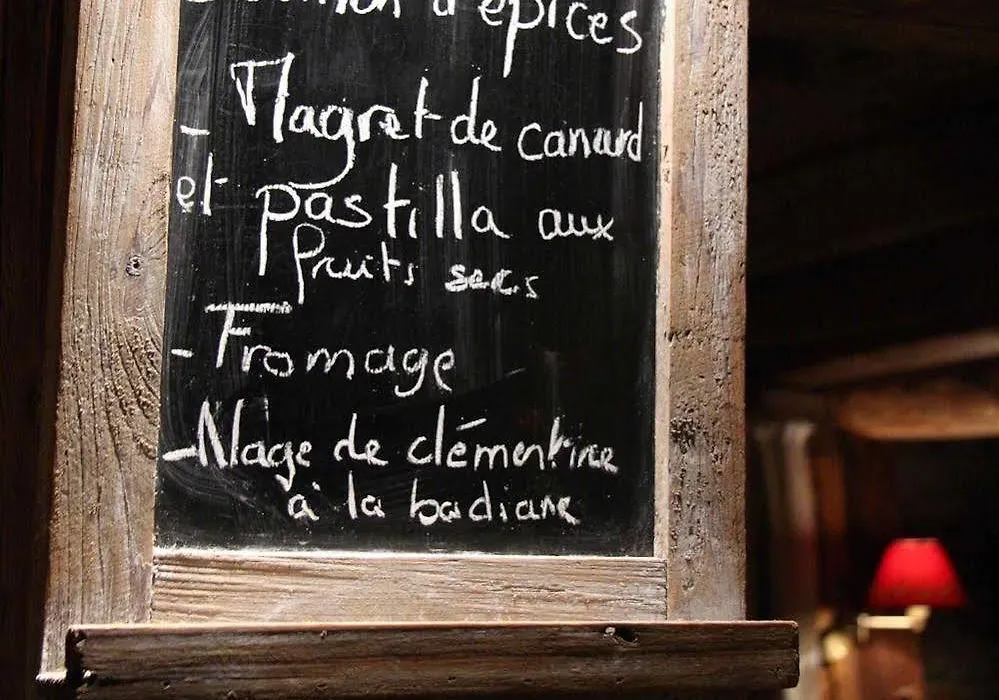 d'épices
- Magret de canard
et pastilla aux
fruits secs
- Fromage
- Nage de clémentine
à la badiane